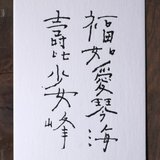 福如愛琴海……
壽比少女峰